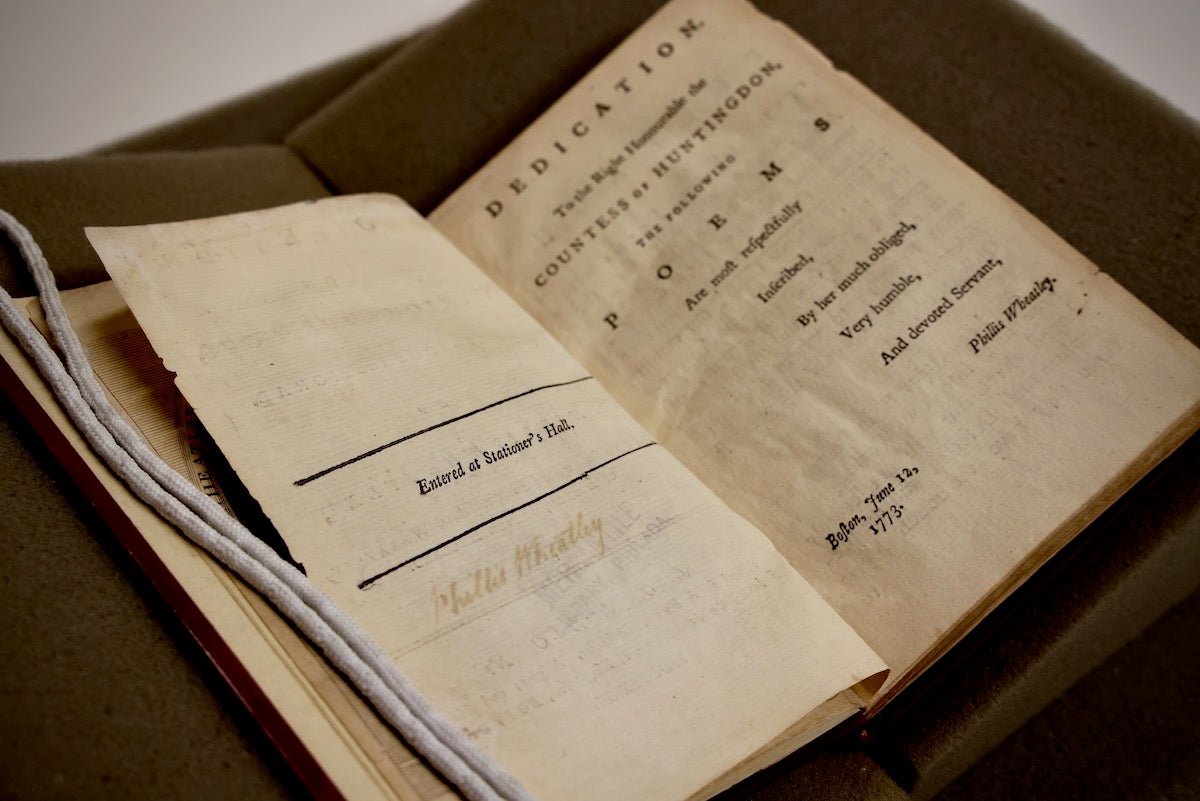 Entered at Stationer's Hall.
Phillis Wheatley
DEDICATION.
To the Right Honourable the
COUNTESS OF HUNTINGDON,
THE FOLLOWING
POEMS
Are moſt reſpectfully
Inſcribed,
By her much obliged,
Very humble,
And devoted Servant,
Phillis Wheatley.
Boſton, June 12,
1773.